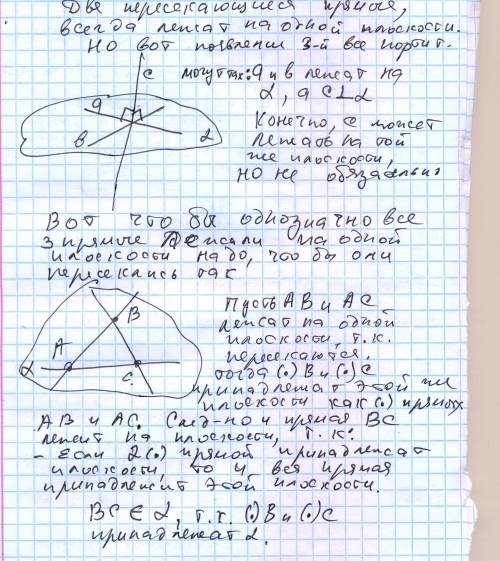 Две пересекающиеся прямые,
всегда лежат на одной плоскости.
Но вот появление 3-й все портит.
c
могут так: a и в лежат на
α, а C⊥α
a
в
α
Конечно, с может
лежать на той
же плоскости,
но не обязательно
Вот что бы однозначно все
3 прямые лежали на одной
плоскости надо, что бы они
пересеклись так
B
A
α
C
Пусть AB и AC
лежат на одной
плоскости, т.к.
пересекаются.
тогда (·) B и (·) C
принадлежат этой же
плоскости как (·) прямых
AB и AC. След-но и прямая BC
лежит на плоскости, т.к:
- если 2(·) прямой принадлежат
плоскости, то и вся прямая
принадлежит этой плоскости.
BC ∈ α, т.к. (·) B и (·) C
принадлежат α.